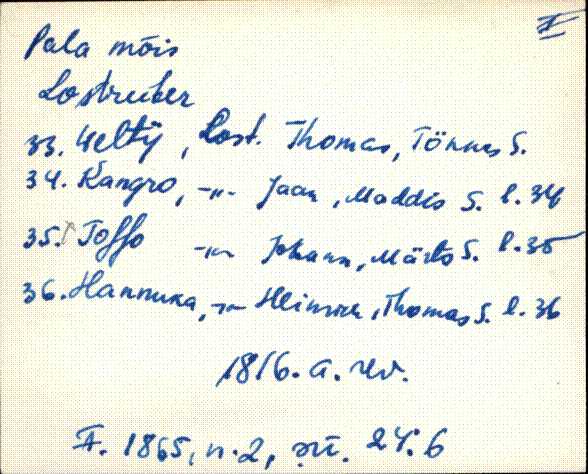 II
Pala mõis
Lostreiber
33. Weltÿ, Lost. Thomas, Tönnis S.
34. Kangro, -"- Jaan, Maddis S. l. 34
35. Toffo -"- Johann, Märts S. l. 35
36. Hannuka, -"- Heinrich, Thomas S. l. 36
1816. a. rev.
F. 1865, n. 2, sü. 24:6